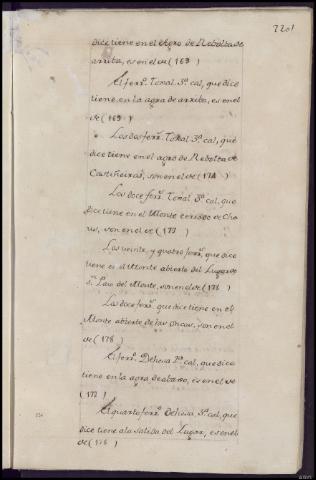 2201
dice tiene en el Agro de Rebolta de
arriba, es en el de (163)
Al ferr.º Tonal 3.ª cal, que dice
tiene en la agra de arriba, es en el
de (169)
Los dos ferr.º Tonal 3.ª cal, que
dice tiene en el agro de Rebolta de
Castiñeiras, son en el de (174)
Los doce ferr.º Tonal 3.ª cal, que
dice tiene en el Monte cerrado de
son en el de (173)
Los veinte, y quatro ferr.º, que dice
tiene en el Monte abierto del Lugar de
S.ⁿ del Monte, son en el de (176)
Los doce ferr.º que dice tiene en el
Monte abierto de son en el
de (178)
Al ferr.º Dehesa 3.ª cal, que dice
tiene en la agra de abajo, es en el de
(177)
Al quarto ferr.º Dehesa, 3.ª cal, que
dice tiene a la salida del Lugar, es en el
de (176)